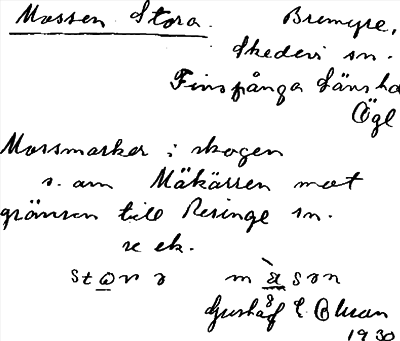 Mossen Stora. Bremyre,
Skedevi sn.
Finspånga länshd
Ögl
Mossmarker i skogen
s. om Mäkärren mot
gränsen till Regna sn.
se ek.
Gustaf E. Olsson
1930